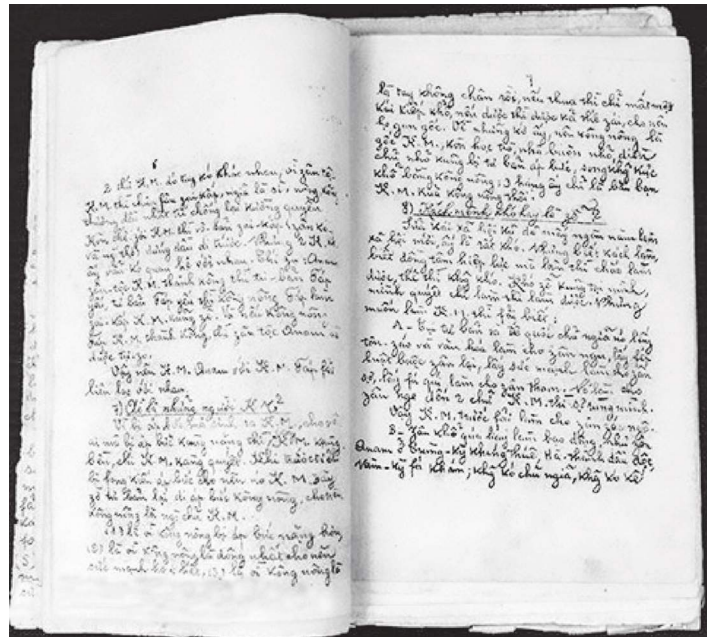 6
2 thứ K.M. đó tuy kó khác nhau, vì zân tộc
K.M. thì chưa fân zai kấp, nghĩa là sĩ, nông, kông,
thương đều nhất trí chống lại kường quyền.
Kòn thế zới K.M. thì vô sản zai kấp
đứng đầu đi trước. Nhưng 2 K.M.
ấy vẫn kó quan hệ với nhau. Thí zụ: Anam
zân tộc K.M. thành kông thì tư bản Fáp
yếu, tư bản Fáp yếu thì kông nông Fáp làm
zai kấp K.M. kũng zễ. Và nếu kông nông
Fáp K.M. thành kông, thì zân tộc Anam sẽ
được tự zo.
Vậy nên K.M. Anam với K.M. Fáp fải
liên lạc với nhau.
7) Ai là những người K.M.?
Vì bị áp bức mà sinh ra K.M., cho nên
ai mà bị áp bức kàng nặng thì K.M. kàng
bền, chí K.M. kàng quyết. Khi trước tư bản
bị fong kiến áp bức cho nên nó K.M. Bây
zờ tư bản lại đi áp bức kông nông, cho nên
kông nông là người chủ K.M.
1) là vì kông nông bị áp bức nặng hơn,
2) là vì kông nông là đông nhất cho nên
sức mạnh hơn hết, 3) là vì kông nông là
7
là tay không chân rồi, nếu thua thì chỉ mất một
kái kiếp khổ, nếu được thì được kả thế zới, cho nên
họ gan góc. Vì những kớ ấy, nên kông nông là
gốc K.M., kòn học trò, nhà buôn nhỏ, điền
chủ nhỏ kũng bị tư bản áp bức, song khổng kực
khổ bằng kông nông; 3 hạng ấy chỉ là bầu bạn
K.M. kủa kông nông thôi.
8) Kách mệnh khó hay là zễ?
Sửa kái xã hội kũ đã mấy ngàn năm làm
xã hội mới, ấy là rất khó. Nhưng biết kách làm,
biết đồng tâm hiệp lực mà làm thì chắc làm
được, thế thì khổng khó. Khó zễ kũng tại mình,
mình quyết chí làm thì làm được. Nhưng
muốn làm K.M. thì fải biết:
A- Tụi tư bản và đế quốc chủ nghĩa nó lấy
tôn záo và văn hóa làm cho zân ngu, lấy fép
luật buộc zân lại, lấy sức mạnh làm cho zân
sợ, lấy fú quý làm cho zân tham. Nó làm cho
zân nghe đến 2 chữ K.M. thì sợ rùng mình.
Vậy K.M. trước fải làm cho zân zác ngộ.
B- Zân khổ quá hay làm bạo động, như zân
Anam ở Trung-kỳ kháng thuế, Hà-thành đầu độc,
Nam-kỳ fá khám; không kó chủ nghĩa, không kó kế